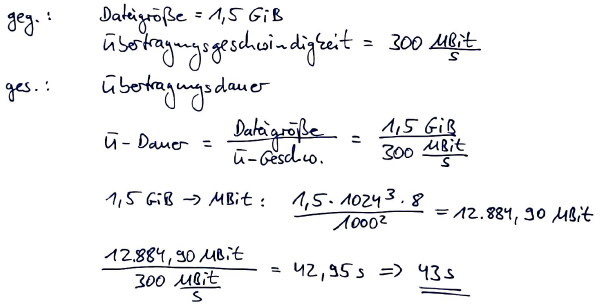 geg.: Dateigröße = 1,5 GiB
Übertragungsgeschwindigkeit = 300 MBit/s
ges.: Übertragungsdauer
Ü-Dauer = Dateigröße / Ü-Geschw. = 1,5 GiB / 300 MBit/s
1,5 GiB → MBit: 1,5 · 1024³ · 8 / 1000² = 12.884,90 MBit
12.884,90 MBit / 300 MBit/s = 42,95 s => 43 s